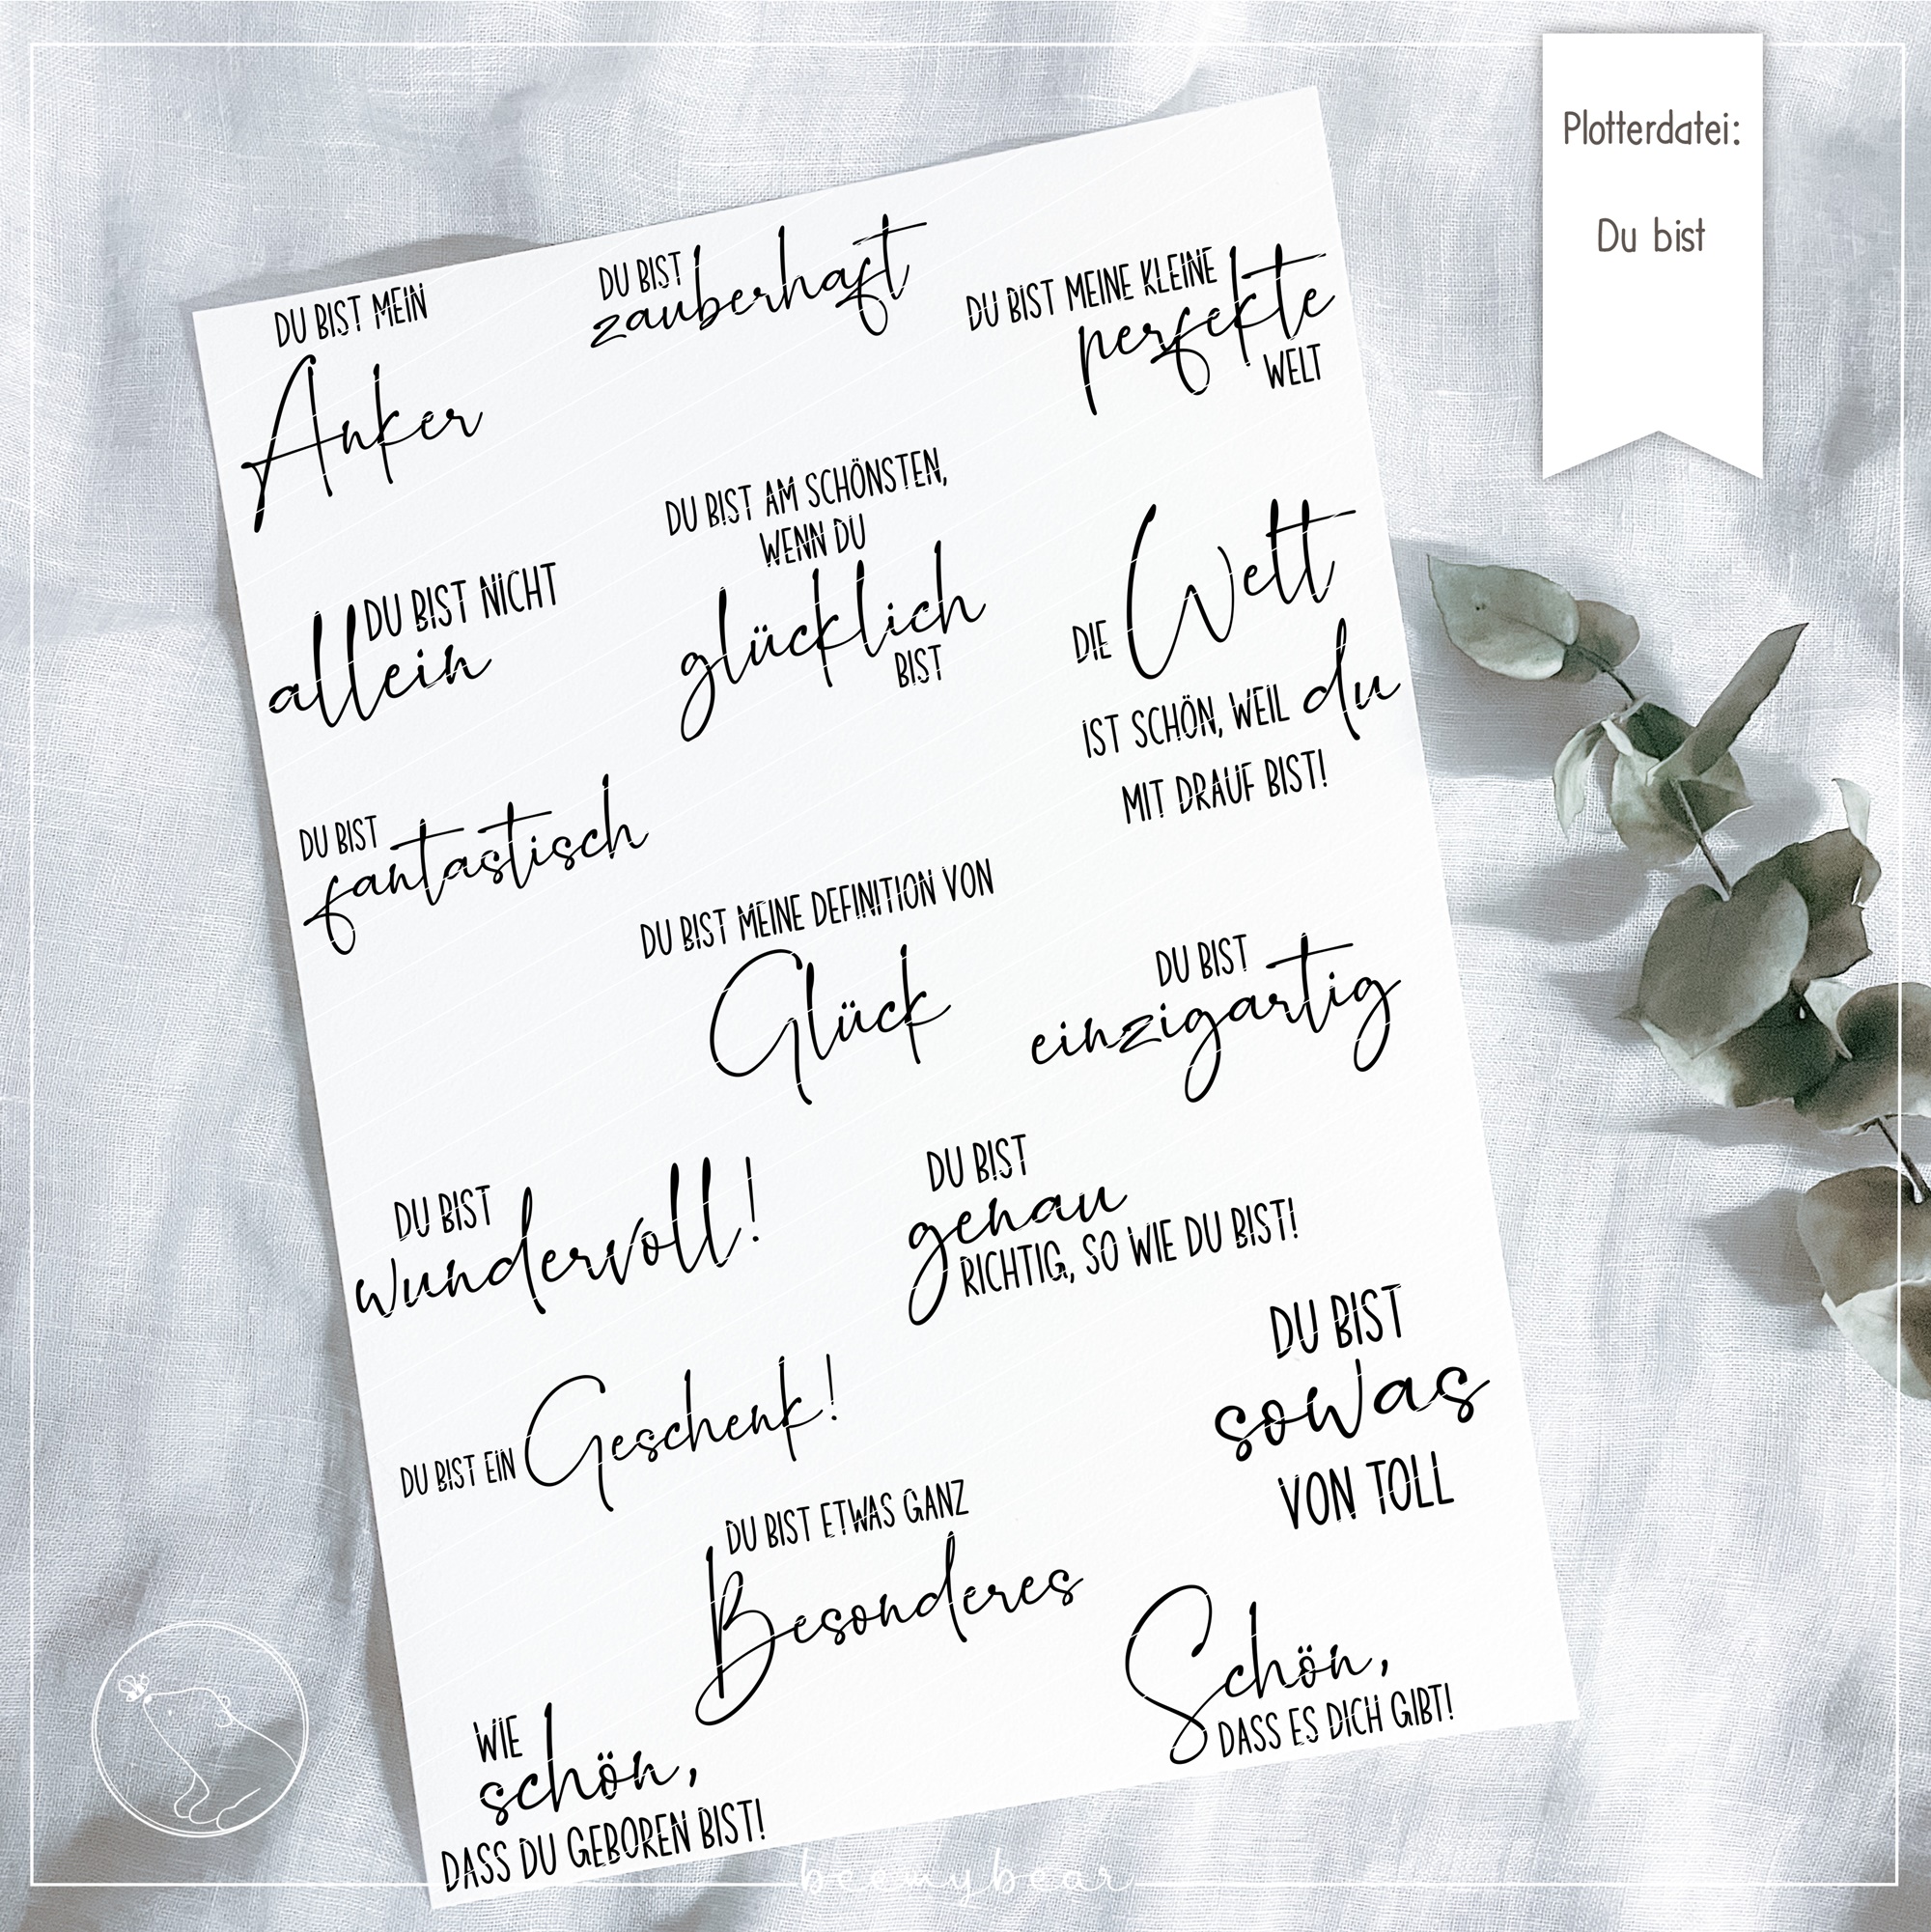 Plotterdatei:
Du bist
DU BIST MEIN
Anker
DU BIST
zauberhaft
DU BIST MEINE KLEINE
perfekte
WELT
DU BIST NICHT
allein
DU BIST AM SCHÖNSTEN,
WENN DU
glücklich
BIST
DIE Welt
IST SCHÖN, WEIL du
MIT DRAUF BIST!
DU BIST
fantastisch
DU BIST MEINE DEFINITION VON
Glück
DU BIST
einzigartig
DU BIST
wundervoll!
DU BIST
genau
RICHTIG, SO WIE DU BIST!
DU BIST EIN Geschenk!
DU BIST
sowas
VON TOLL
DU BIST ETWAS GANZ
Besonderes
WIE
schön,
DASS DU GEBOREN BIST!
Schön,
DASS ES DICH GIBT!
beemybear